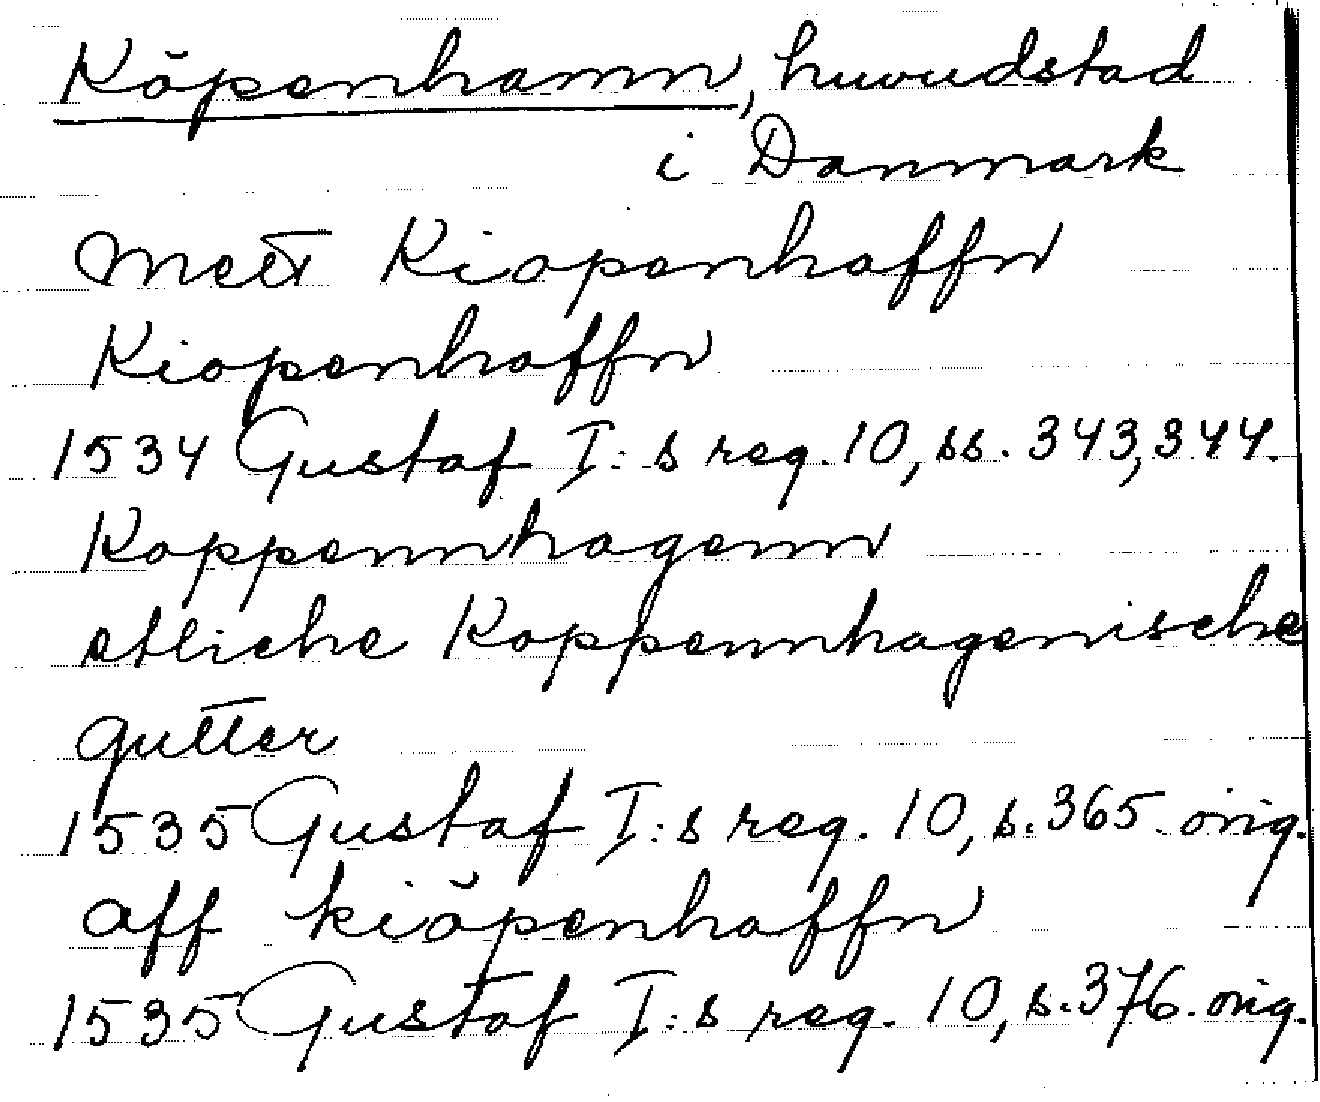 Köpenhamn, huvudstad
i Danmark
meet Kiopenhaffn
Kiopenhaffn
1534 Gustaf I:s reg. 10, ss. 343, 344.
Koppennhagenn
etliche Koppennhagenische
gutter
1535 Gustaf I:s reg. 10, s. 365. orig.
aff kiöpenhaffn
1535 Gustaf I:s reg. 10, s. 376. orig.